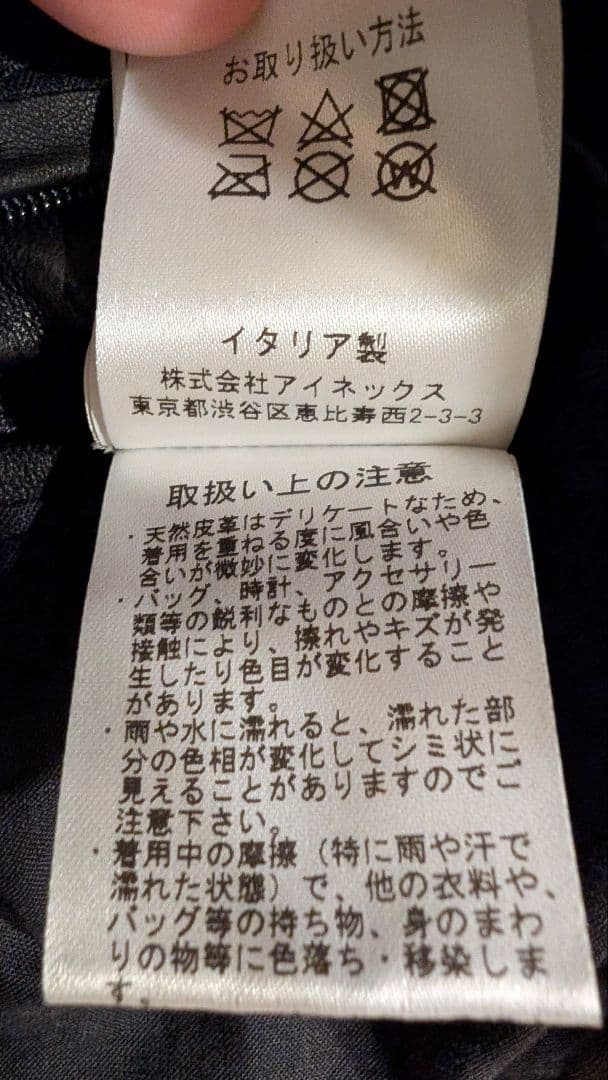 お取り扱い方法
W
イタリア製
株式会社アイネックス
東京都渋谷区恵比寿西2-3-3
取扱い上の注意
・天然皮革はデリケートなため、
着用を重ねる度に風合いや色
合いが微妙に変化します。
・バッグ、時計、アクセサリー
類等の鋭利なものとの摩擦や
接触により、擦れやキズが発
生したり色目が変化すること
があります。
・雨や水に濡れると、濡れた部
分の色相が変化してシミ状に
見えることがありますのでご
注意下さい。
・着用中の摩擦（特に雨や汗で
濡れた状態）で、他の衣料や、
バッグ等の持ち物、身のまわ
りの物等に色落ち・移染しま
す。